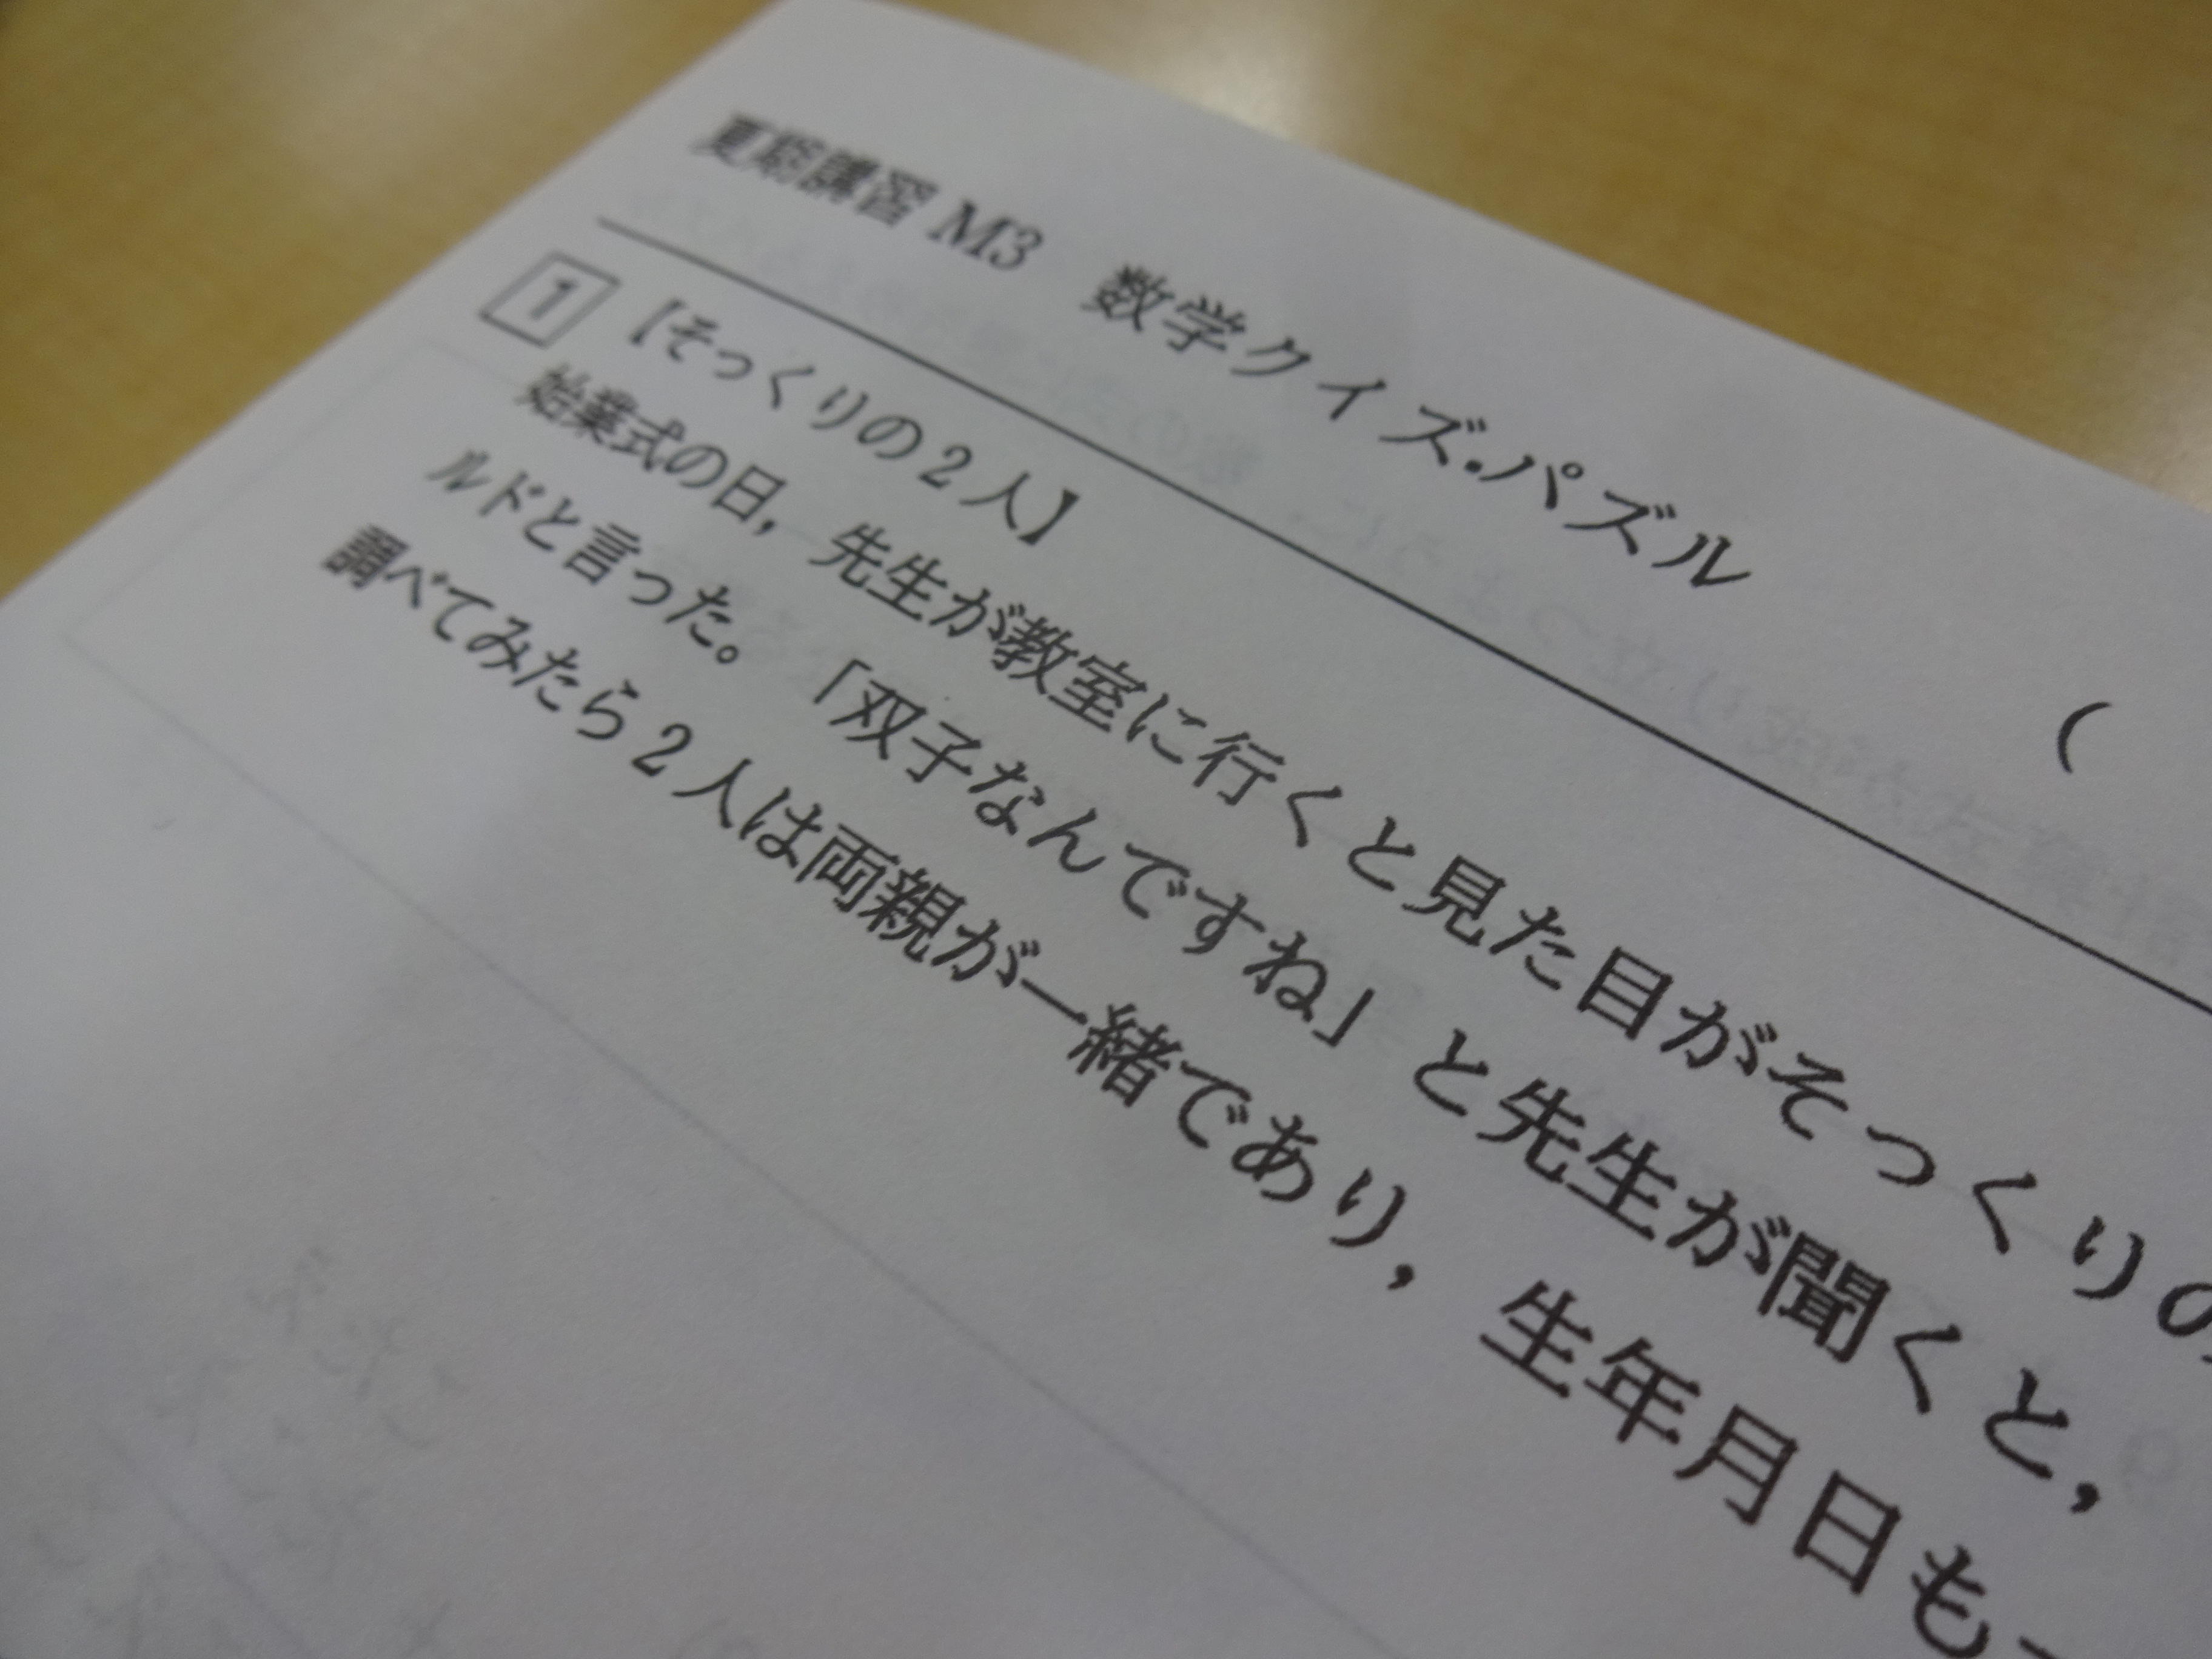 夏期講習 M3 数学クイズ・パズル (
1 【そっくりの2人】
始業式の日，先生が教室に行くと見た目がそっくりの
ルドと言った。「双子なんですね」と先生が聞くと，
調べてみたら2人は両親が一緒であり，生年月日も一